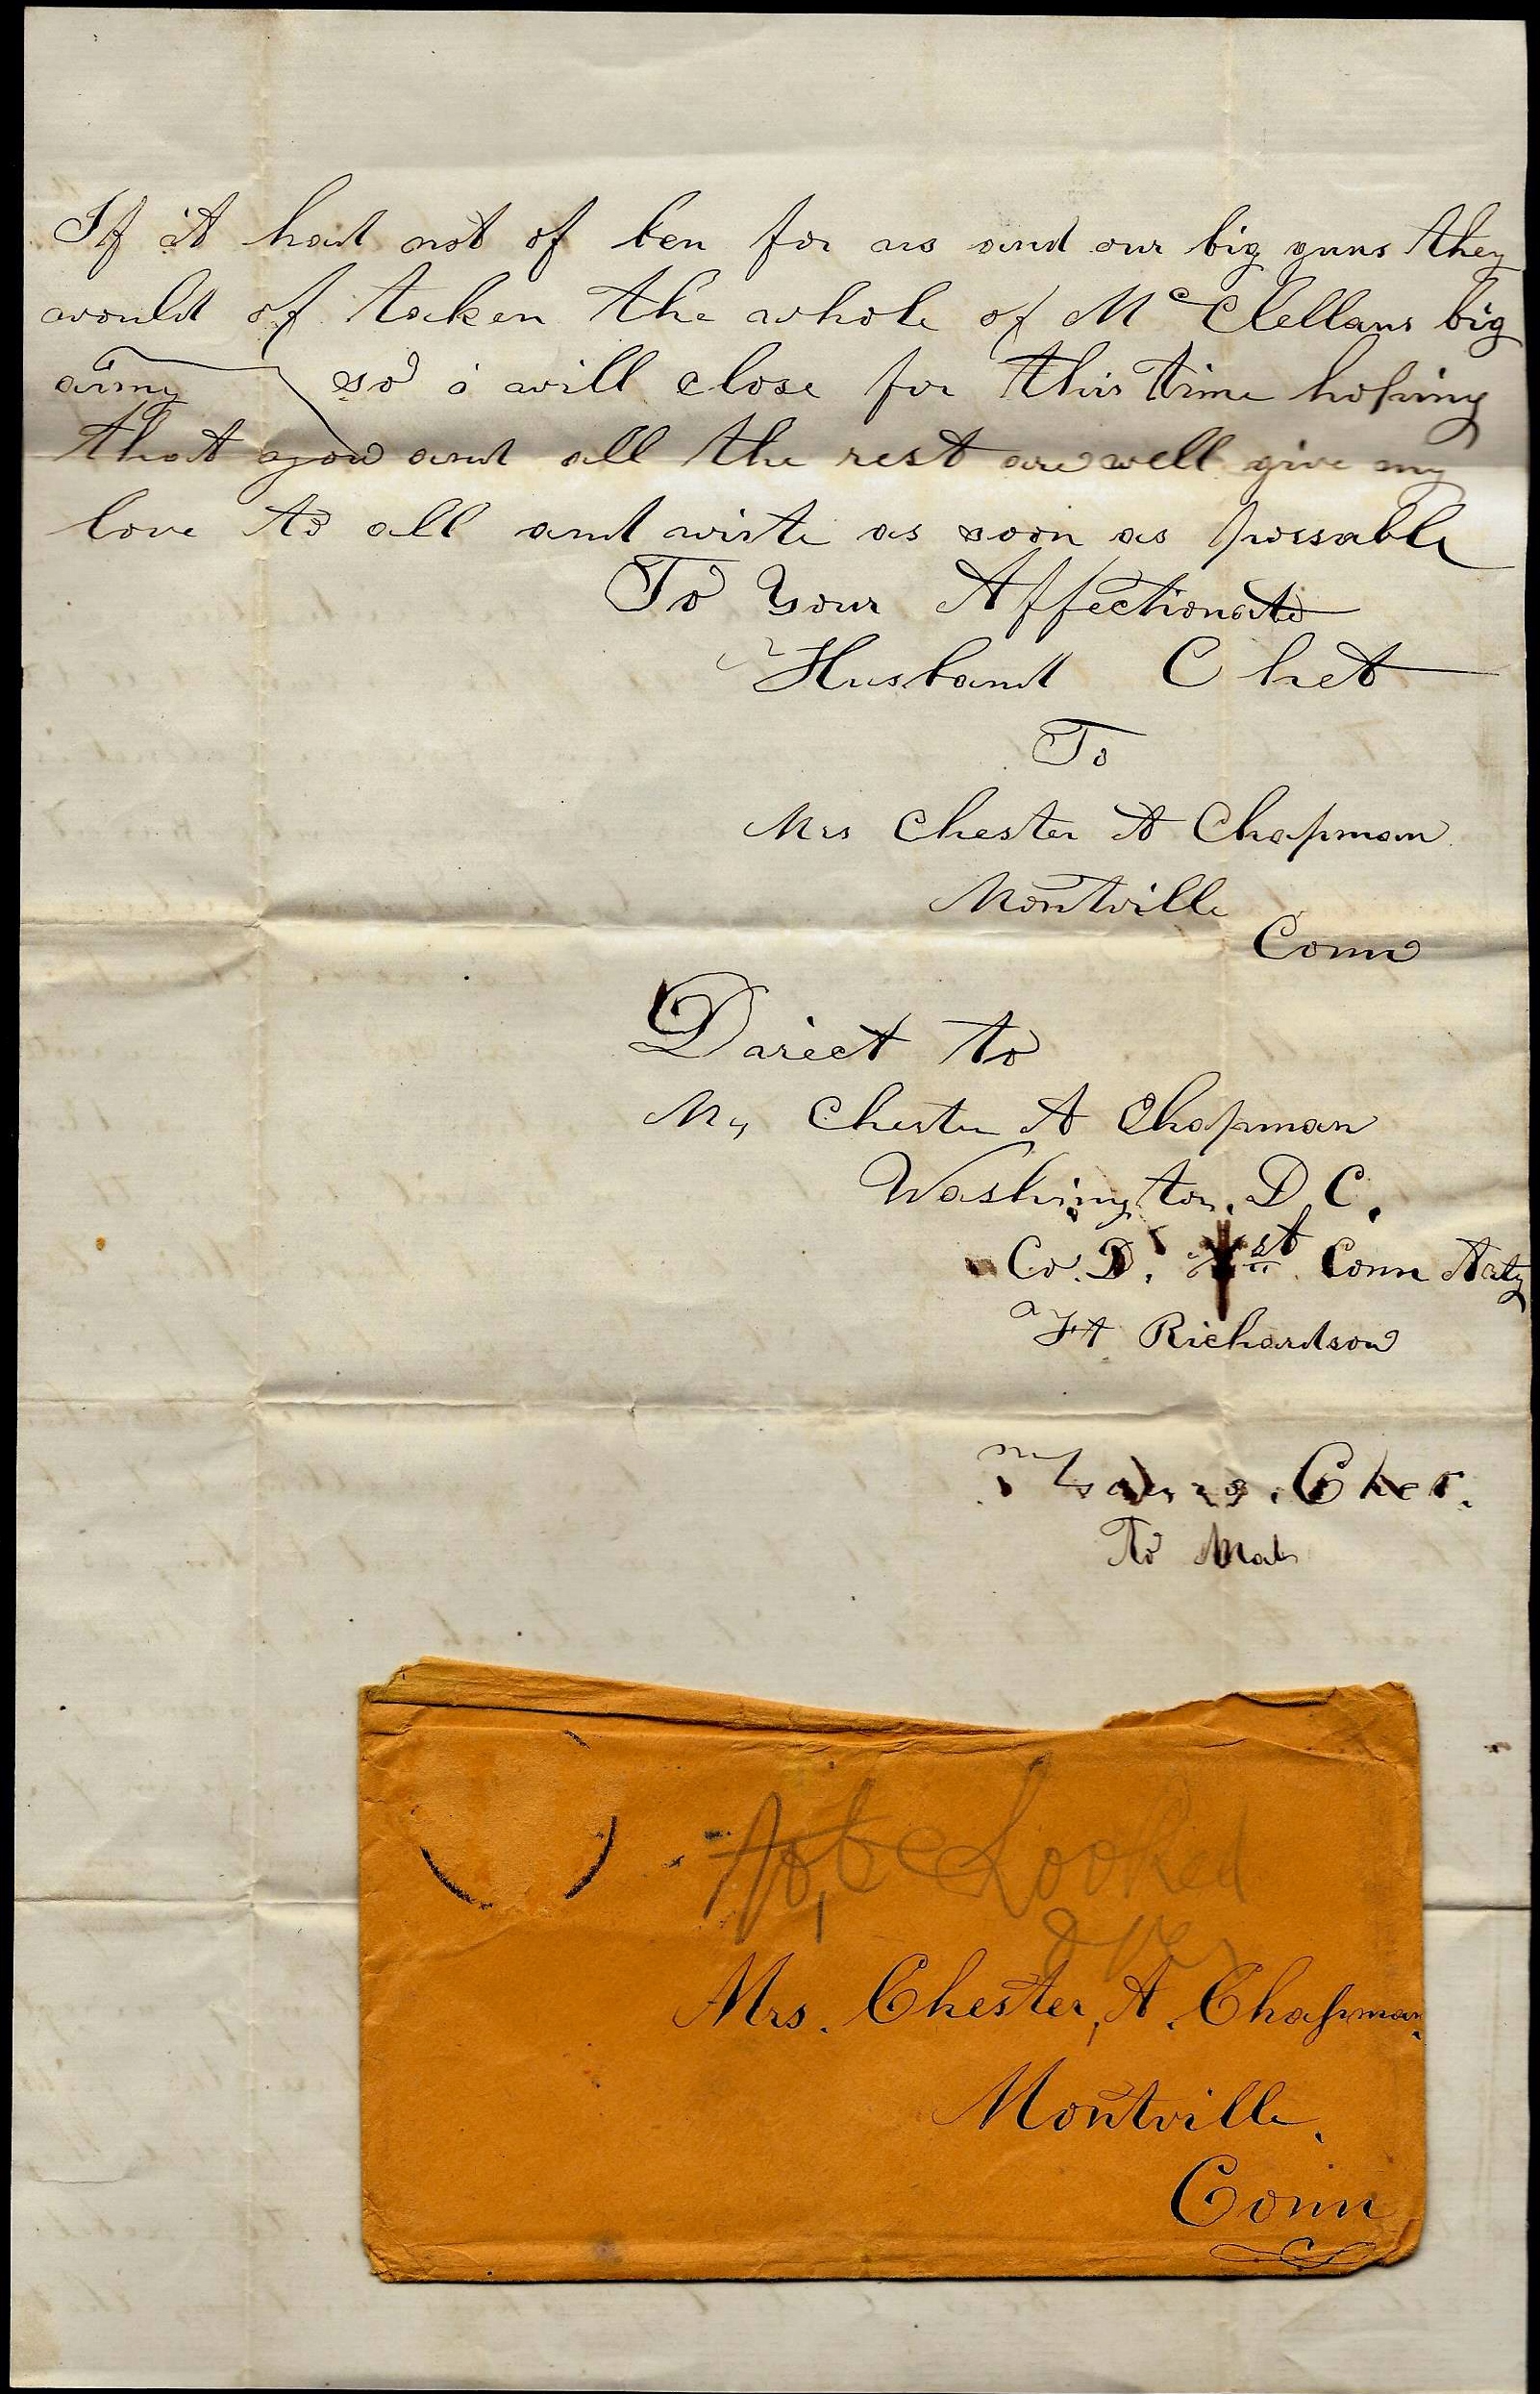 If it had not of ben for us and our big guns they
would of taken the whole of McClellans big
army so i will close for this time hoping
that you and all the rest are well give my
love to all and wirte as soon as possable
To Your Affectionate
Husband Chet
To
Mrs Chester A Chapman
Montville
Conn
Direct to
Mr Chester A Chapman
Washington, D. C.
Co. D. 1st Conn Arty
Ft Richardson
Chet.
To
to be Looked
over
Mrs. Chester, A. Chapman.
Montville.
Conn